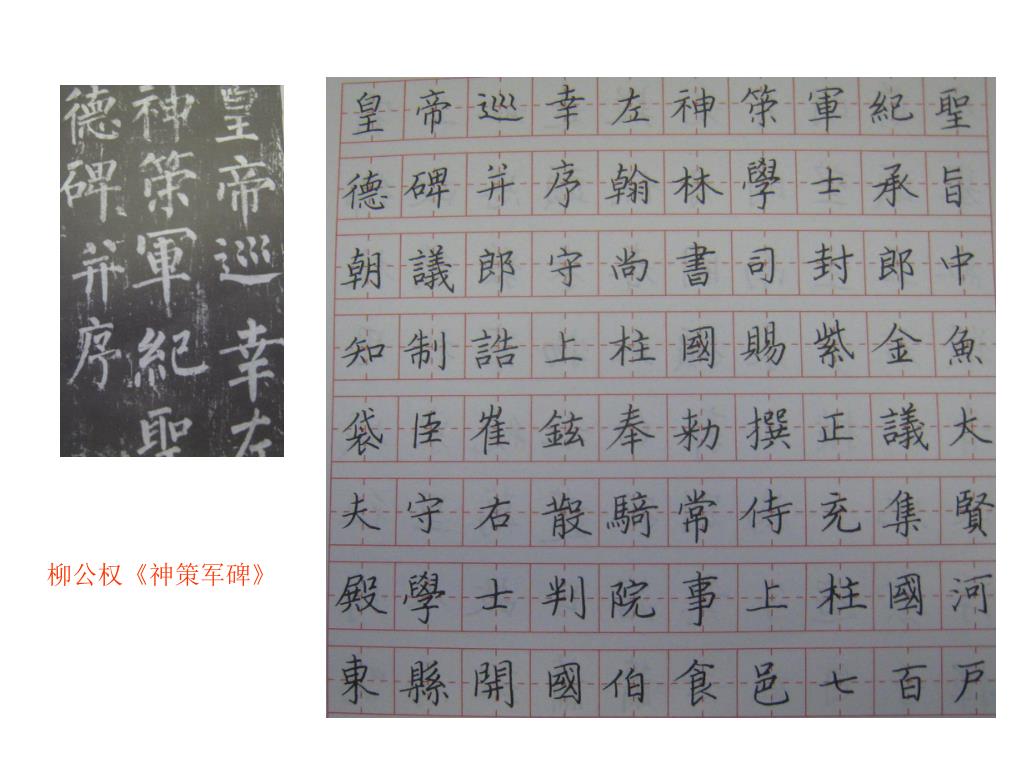 皇帝巡幸左
神策軍紀聖
德碑并序
柳公权《神策军碑》
皇帝巡幸左神策軍紀聖
德碑并序翰林學士承旨
朝議郎守尚書司封郎中
知制誥上柱國賜紫金魚
袋臣崔鉉奉勑撰正議大
夫守右散騎常侍充集賢
殿學士判院事上柱國河
東縣開國伯食邑七百户